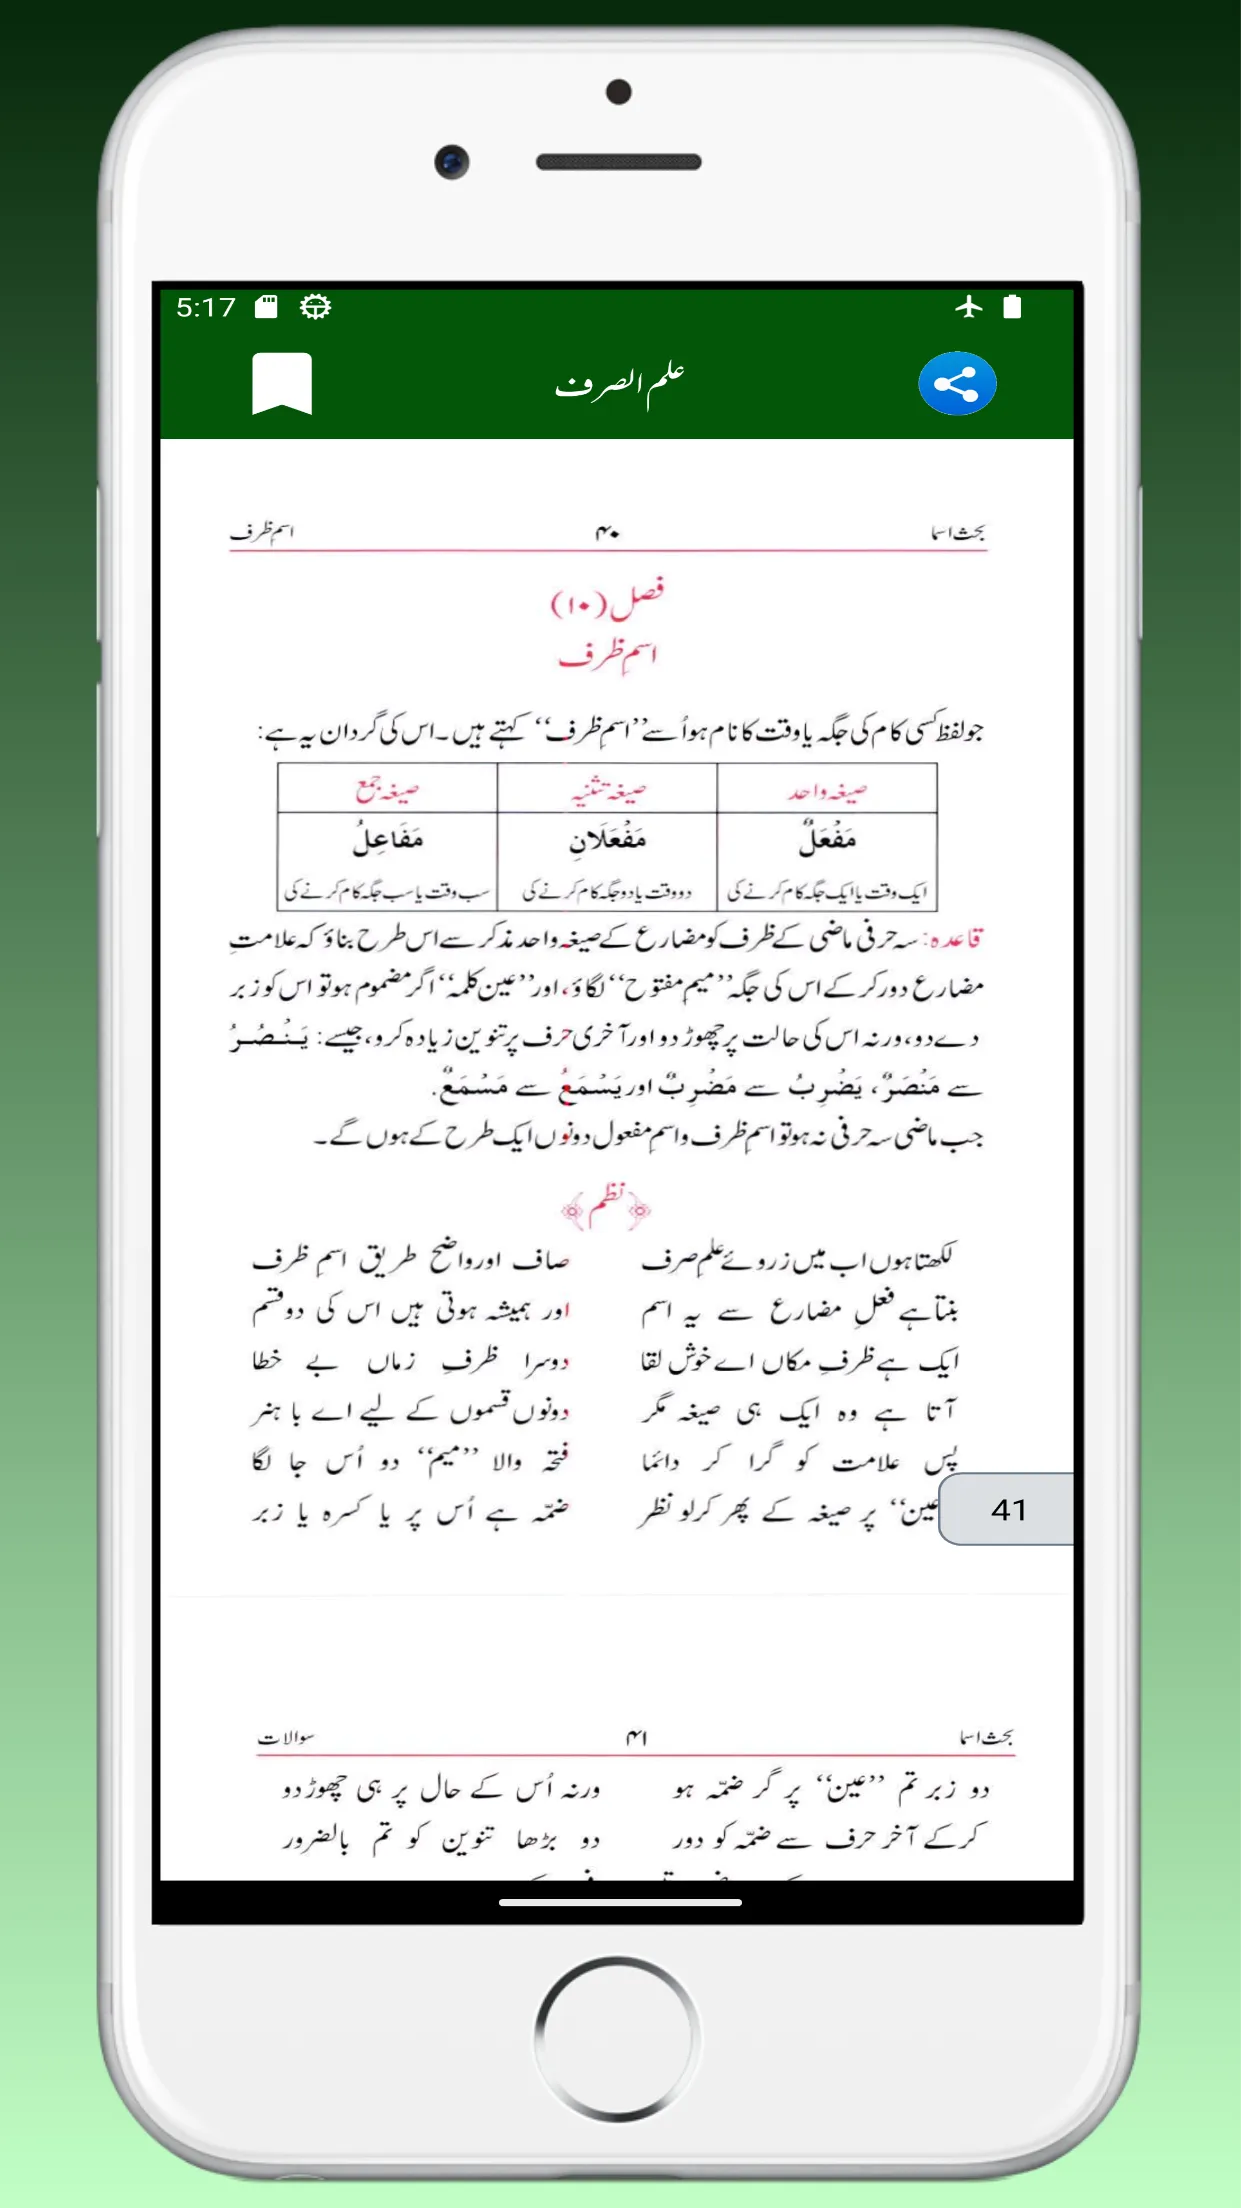 5:17
علم الصرف
بحث اسما ۴۰ اسمِ ظرف
فصل (۱۰)
اسمِ ظرف
جو لفظ کسی کام کی جگہ یا وقت کا نام ہو اُسے ’’اسمِ ظرف‘‘ کہتے ہیں۔ اس کی گردان یہ ہے:
صیغہ واحد صیغہ تثنیہ صیغہ جمع
مَفْعَلٌ مَفْعَلَانِ مَفَاعِلُ
ایک وقت یا ایک جگہ کام کرنے کی دو وقت یا دو جگہ کام کرنے کی سب وقت یا سب جگہ کام کرنے کی
قاعدہ: سہ حرفی ماضی کے ظرف کو مضارع کے صیغہ واحد مذکر سے اس طرح بناؤ کہ علامتِ
مضارع دور کر کے اس کی جگہ ’’میم مفتوح‘‘ لگاؤ، اور ’’عین کلمہ‘‘ اگر مضموم ہو تو اس کو زبر
دے دو، ورنہ اس کی حالت پر چھوڑ دو اور آخری حرف پر تنوین زیادہ کرو، جیسے: يَنْصُرُ
سے مَنْصَرٌ، يَضْرِبُ سے مَضْرِبٌ اور يَسْمَعُ سے مَسْمَعٌ.
جب ماضی سہ حرفی نہ ہو تو اسمِ ظرف واسمِ مفعول دونوں ایک طرح کے ہوں گے۔
نظم
لکھتا ہوں اب میں ز روئے علمِ صرف صاف اور واضح طریق اسمِ ظرف
بنتا ہے فعلِ مضارع سے یہ اسم اور ہمیشہ ہوتی ہیں اس کی دو قسم
ایک ہے ظرفِ مکاں اے خوش لقا دوسرا ظرفِ زماں بے خطا
آتا ہے وہ ایک ہی صیغہ مگر دونوں قسموں کے لیے اے با ہنر
پس علامت کو گرا کر دائما فتحہ والا ’’میم‘‘ دو اُس جا لگا
عین‘‘ پر صیغہ کے پھر کرلو نظر ضمّہ ہے اُس پر یا کسرہ یا زبر
41
بحث اسما ۴۱ سوالات
دو زبر تم ’’عین‘‘ پر گر ضمّہ ہو ورنہ اُس کے حال پر ہی چھوڑ دو
کرکے آخر حرف سے ضمّہ کو دور دو بڑھا تنوین کو تم بالضرور